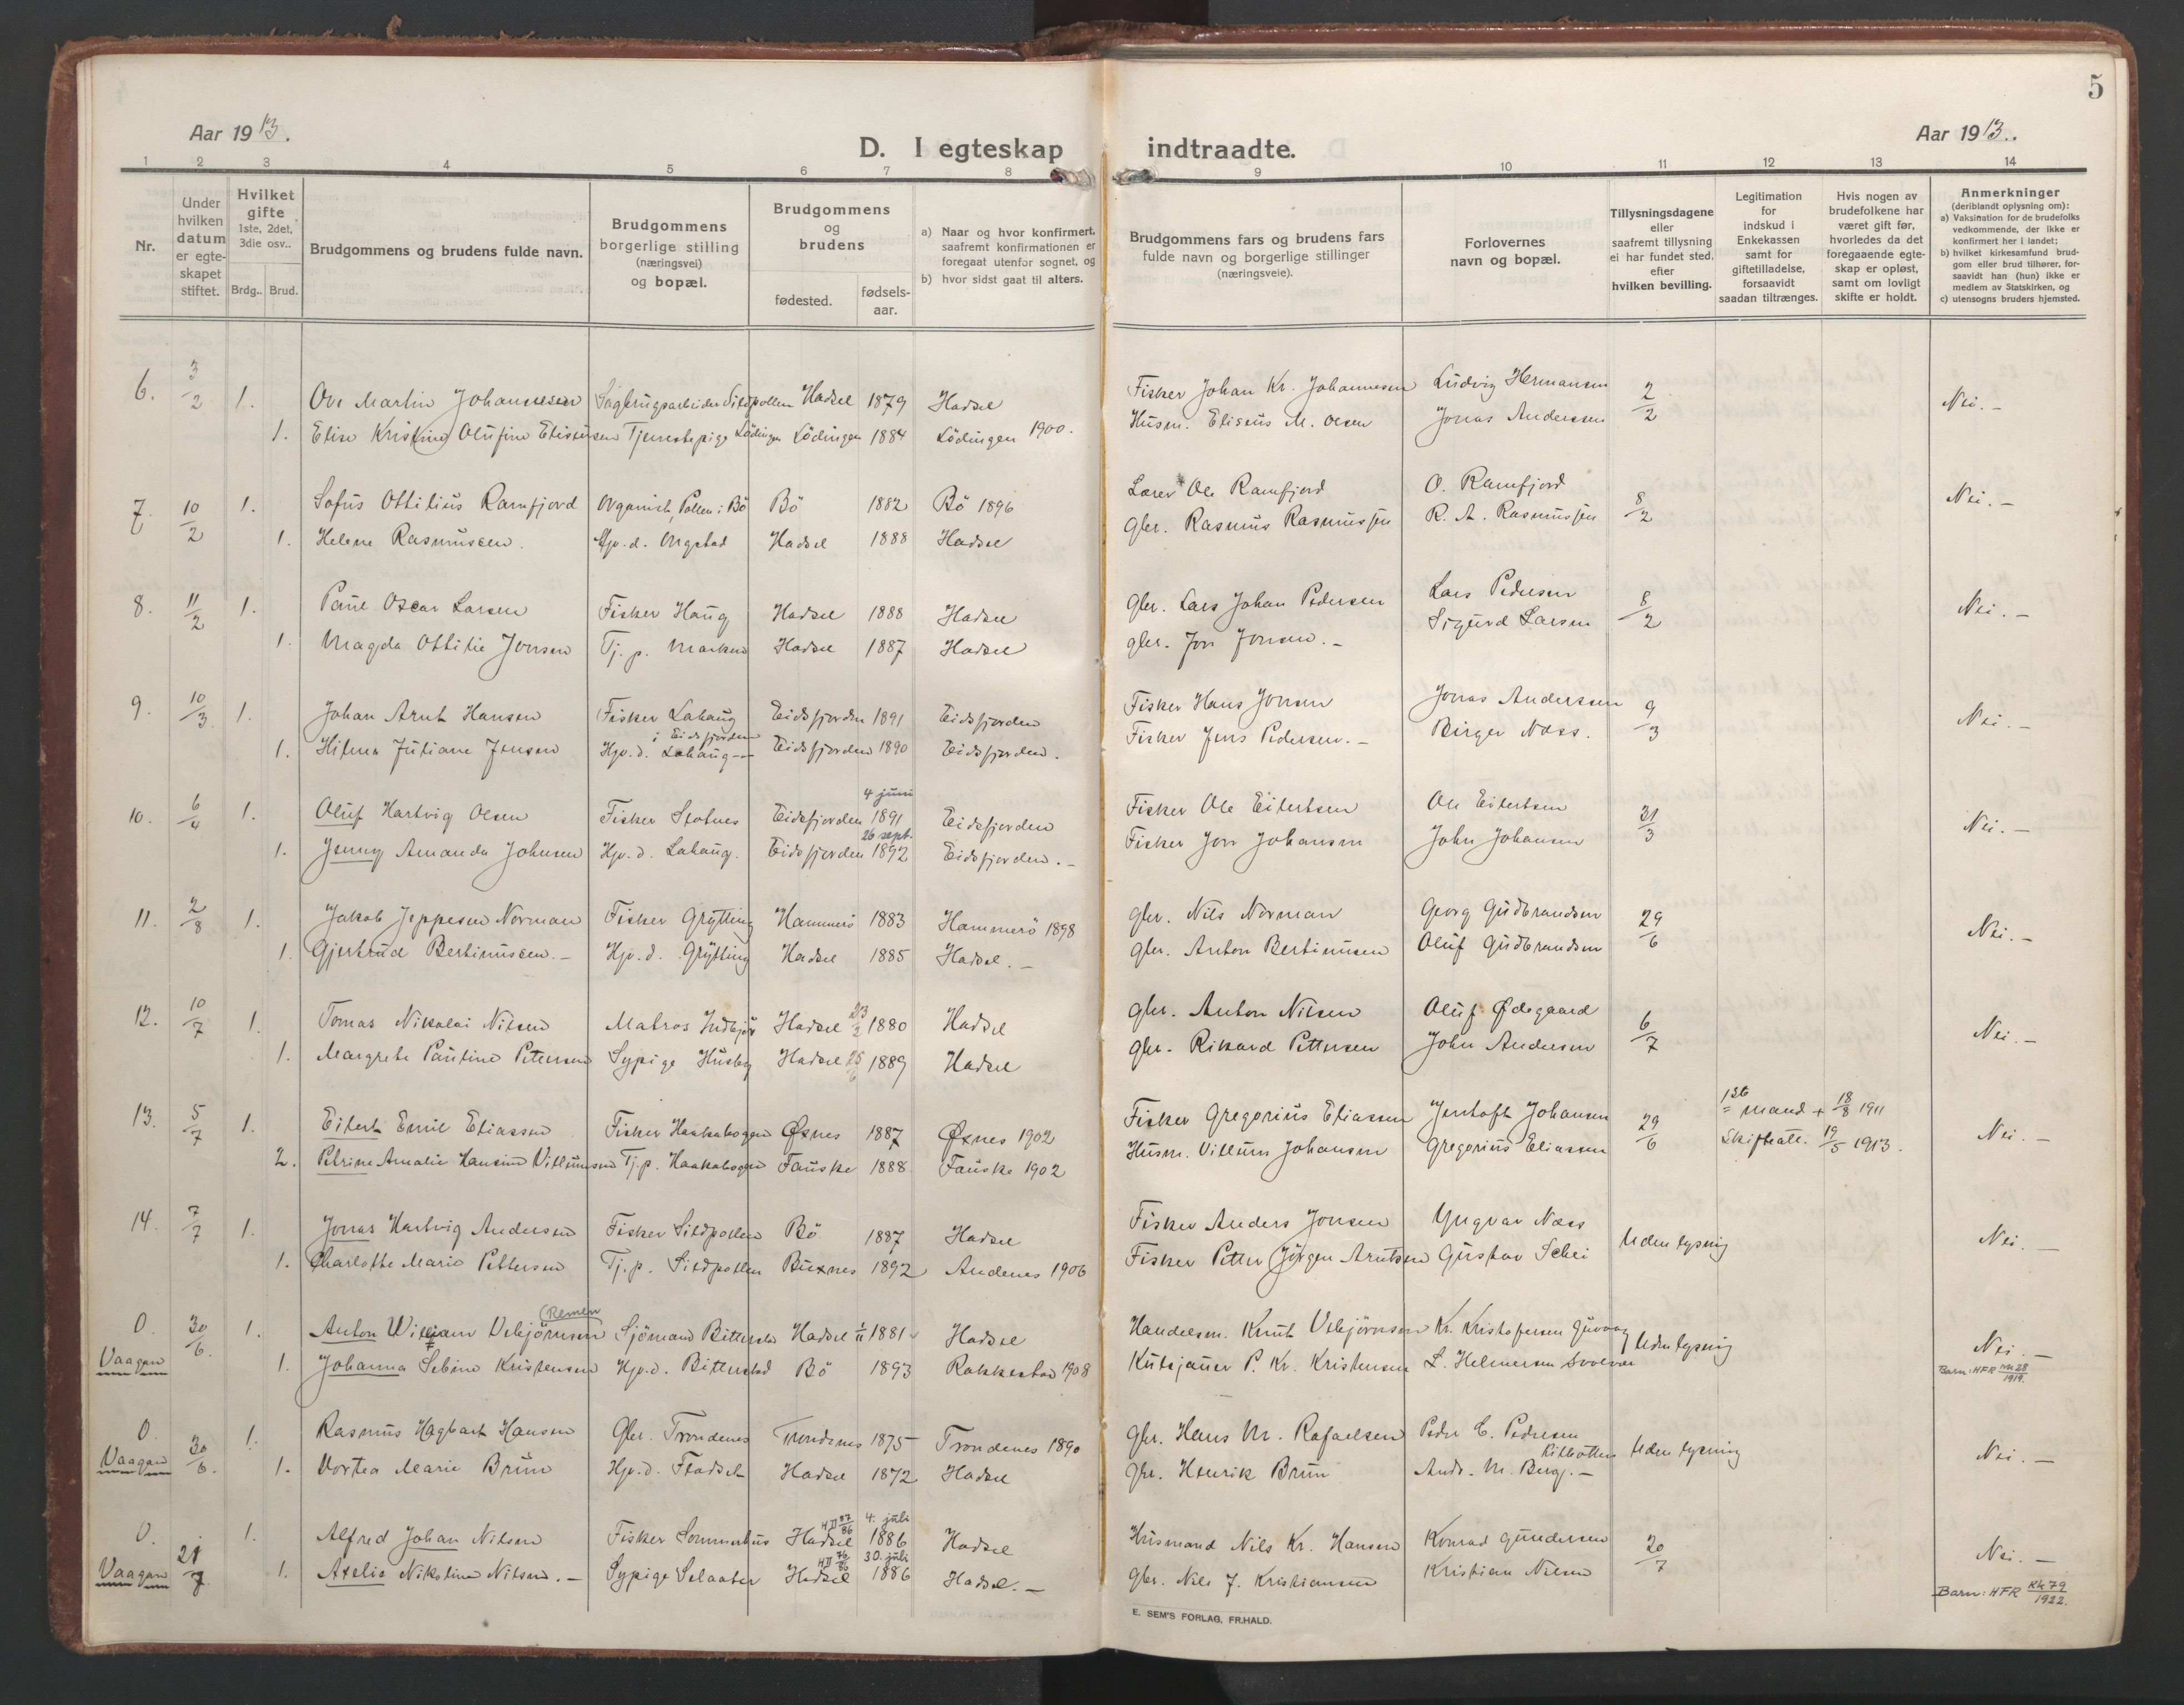 5
Aar 1913.
Aar 1913.
D. I egteskap indtraadte.
1 2 3 4 5 6 7 8 9 10 11 12 13 14
Nr.
Under hvilken datum er egte-skapet stiftet.
Hvilket gifte 1ste, 2det, 3die osv..
Brdg.. Brud.
Brudgommens og brudens fulde navn.
Brudgommens borgerlige stilling (næringsvei) og bopæl.
Brudgommens og brudens
fødested.
fødsels-aar.
a) Naar og hvor konfirmert, saafremt konfirmationen er foregaat utenfor sognet, og
b) hvor sidst gaat til alters.
Brudgommens fars og brudens fars fulde navn og borgerlige stillinger (næringsveie).
Forlovernes navn og bopæl.
Tillysningsdagene eller saafremt tillysning ei har fundet sted, efter hvilken bevilling.
Legitimation for indskud i Enkekassen samt for giftetilladelse, forsaavidt saadan tiltrænges.
Hvis nogen av brudefolkene har været gift før, hvorledes da det foregaaende egte-skap er opløst, samt om lovligt skifte er holdt.
Anmerkninger (deriblandt oplysning om):
a) Vaksination for de brudefolks vedkommende, der ikke er konfirmert her i landet;
b) hvilket kirkesamfund brud-gom eller brud tilhører, for-saavidt han (hun) ikke er medlem av Statskirken, og
c) utensogns bruders hjemsted.
6. 3/2 1. Ove Martin Johannesen Sagbrugsarbeider Sildpollen Hadsel 1879 Hadsel Fisker Johan Kr. Johannesen Ludvig Hermansen 2/2 Nei.-
1. Elise Kristine Olufine Eliseusen Tjenestepige Lödingen Lödingen 1884 Lödingen 1900. Husm. Eliseus M. Olsen Jonas Andersen
7. 10/2 1. Sofus Ottilius Ramfjord Organist, Pollen i Bö Bö 1882 Bö 1896 Lærer Ole Ramfjord O. Ramfjord 8/2 Nei.-
1. Helene Rasmussen. Hjv. d. Ongstad Hadsel 1888 Hadsel gbr. Rasmus Rasmussen R. A. Rasmussen
8. 11/2 1. Paul Oscar Larsen Fisker Haug Hadsel 1888 Hadsel gbr. Lars Johan Pedersen Lars Pedersen 8/2 Nei.-
1. Magda Ottilie Jonsen Tj. p. Marken Hadsel 1887 Hadsel gbr. Jon Jonsen.- Sigurd Larsen
9. 10/3 1. Johan Arnt Hansen Fisker Lahaug i Eidsfjorden Eidsfjorden 1891 Eidsfjorden Fisker Hans Jonsen Jonas Andersen 9/3 Nei.-
1. Hilma Juliane Jensen Hjv. d. Lahaug - Eidsfjorden 1890 Eidsfjorden. Fisker Jens Pedersen.- Birger Næss.
4 juni
10. 6/4 1. Oluf Hartvig Olsen Fisker Stotnes Eidsfjorden 1891 Eidsfjorden Fisker Ole Eilertsen Ole Eilertsen 31/3 Nei.-
26 sept.
1. Jenny Amanda Johnsen Hjv. d. Lahaug. Eidsfjorden 1892 Eidsfjorden.- Fisker Jon Johansen John Johansen
11. 2/8 1. Jakob Jeppesen Norman Fisker Grytting Hammerö 1883 Hammerö 1898 gbr. Nils Norman Georg Gudbrandsen 29/6 Nei.-
1. Gjertrud Bertinussen.- Hjv. d. Grytting Hadsel 1885 Hadsel.- gbr. Anton Bertinusen Oluf Gudbrandsen
12. 10/7 1. Tomas Nikolai Nilsen Matros Indbjör Hadsel 23/2 1880 Hadsel gbr. Anton Nilsen Oluf Ødegaard 6/7 Nei.-
1. Margrete Pauline Pettersen Sypige Husby Hadsel 25/6 1889 Hadsel gbr. Rikard Pettersen John Andersen
13. 5/7 1. Eilert Emil Eliassen Fisker Haakabogen Øxnes 1887 Øxnes 1902 Fisker Gregorius Eliassen Jentoft Johansen 29/6 1st mand + 18/8 1911 Nei.-
2. Petrine Amalie Hansine Villumsen Tj. p. Haakabogen Fauske 1888 Fauske 1902 Husm. Villum Johansen Gregorius Eliassen Skifteatt. 19/5 1913.
14. 7/7 1. Jonas Hartvig Andersen Fisker Sildpollen Bö 1887 Hadsel Fisker Anders Jonsen Yngvar Næss Uden lysning Nei.-
1. Charlotte Marie Pettersen Tj. p. Sildpollen Buxnes 1892 Andenes 1906 Fisker Petter Jörgen Arntsen Gustav Schei
(Remen
0. 30/6. 1. Anton William Vebjörnsen Sjömand Bitterstad Hadsel 1/11 1881 Hadsel Handelsm. Knut Vebjörnsen Kr. Kristofersen Guvaag Uden lysning Nei.-
Vaagan 1. Johanna Sebine Kristensen Hjv. d. Bitterstad Bö 1893 Rakkestad 1908 P. Kr. Kristensen L. Helmersen Svolvær Barn: HFR 28/1919.
0. 30/6. 1. Rasmus Hagbart Hansen Gbr. Trondenes Trondenes 1875 Trondenes 1890 gbr. Hans M. Rafaelsen Peder C. Pedersen Uden lysning Nei.-
Vaagan 1. Dortea Marie Brun Hjv. d. Fladset Hadsel 1872 Hadsel gbr. Henrik Brun Ands. M. Berg.-
HII 87/86 4. juli
0. 21/7 1. Alfred Johan Nilsen Fisker Sommerhus Hadsel 1886 Hadsel Husmand Nils Kr. Hansen Konrad Gundersen 20/7 Nei.-
HII 76/86 30. juli
Vaagan 1. Axelie Nikoline Nilsen.- Sypige Selaater Hadsel 1886 Hadsel.- gbr. Nils J. Kristiansen Kristian Nilsen Barn: HFR Kk 79/1922.
E. SEM'S FORLAG, FR.HALD.